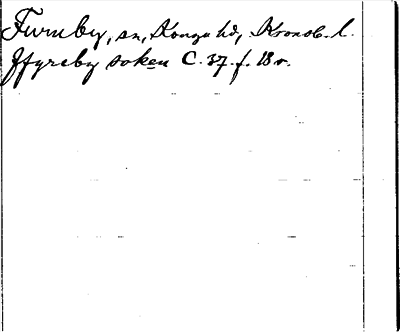 Furuby, sn, Konga hd, Kronob. l.
ffyreby soken C. 37. f. 18 v.